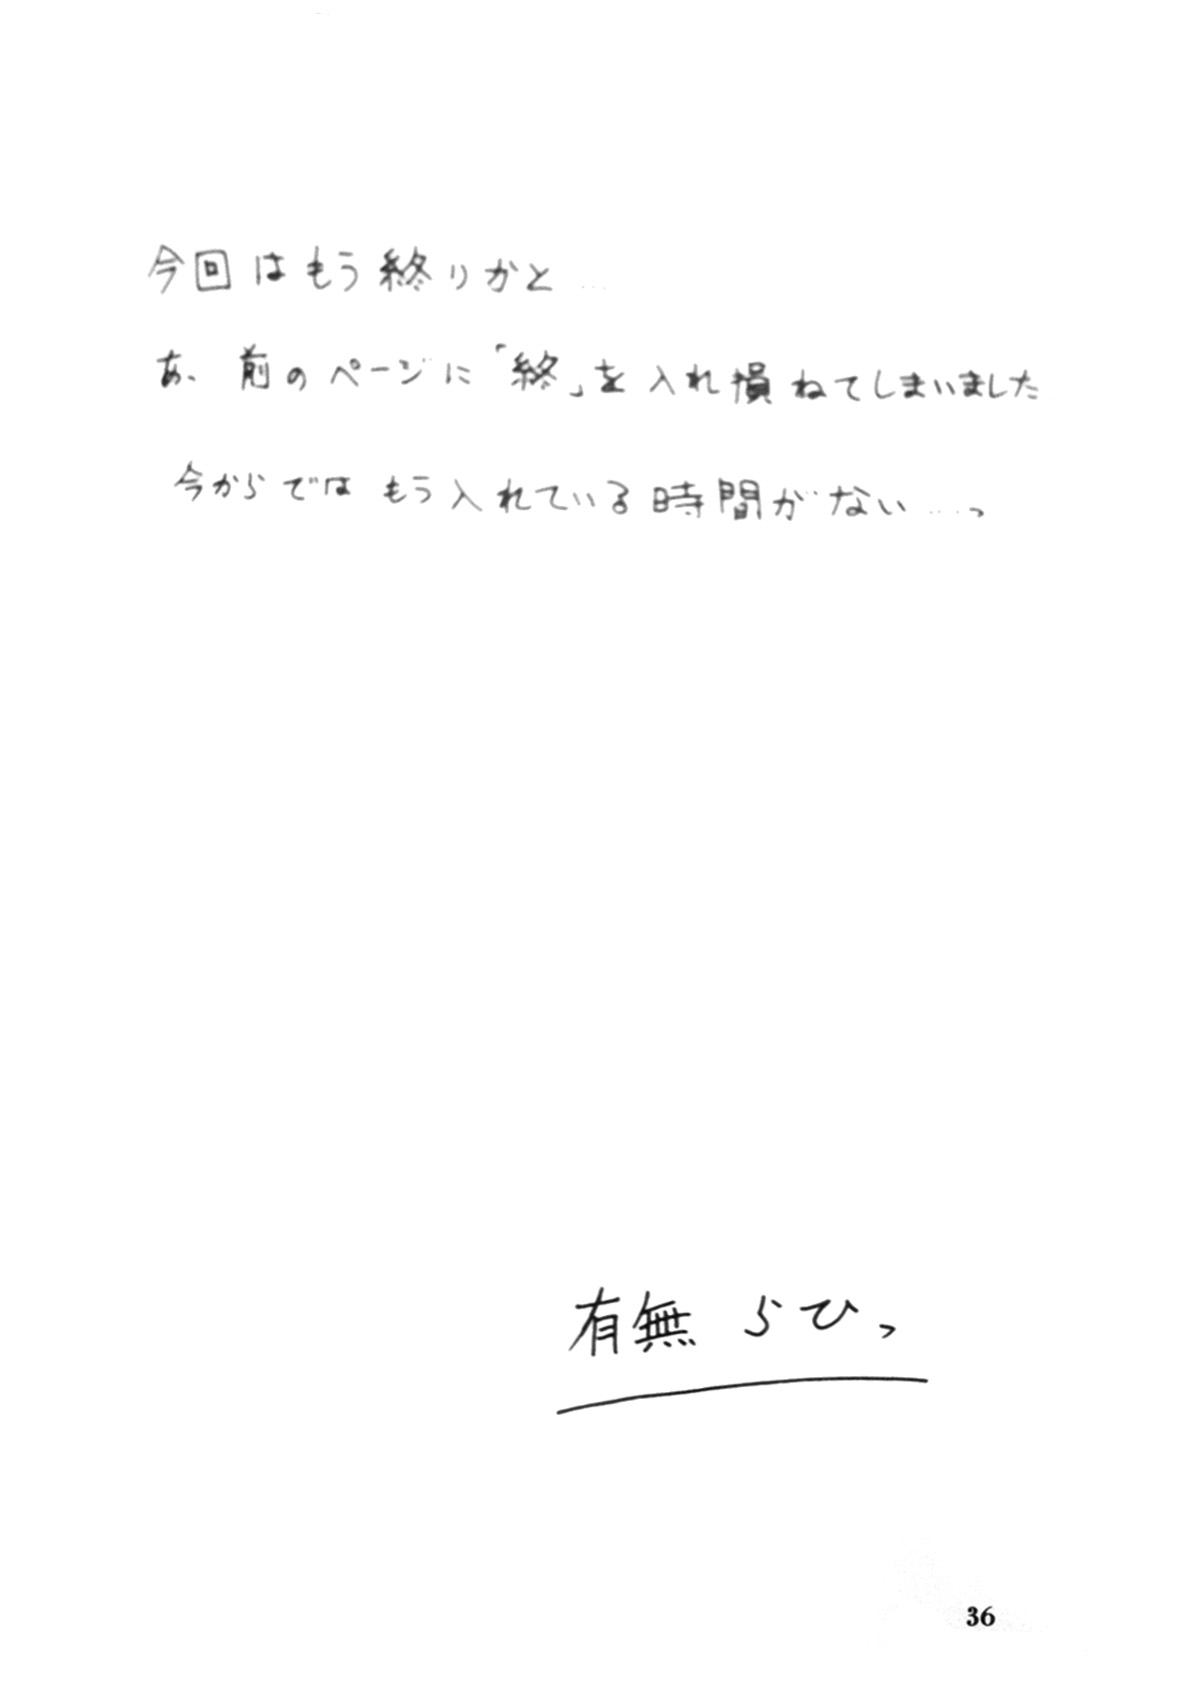 今回はもう終りかと……
あ、前のページに「終」を入れ損ねてしまいました
今からではもう入れている時間がない……っ
有無らひっ
36